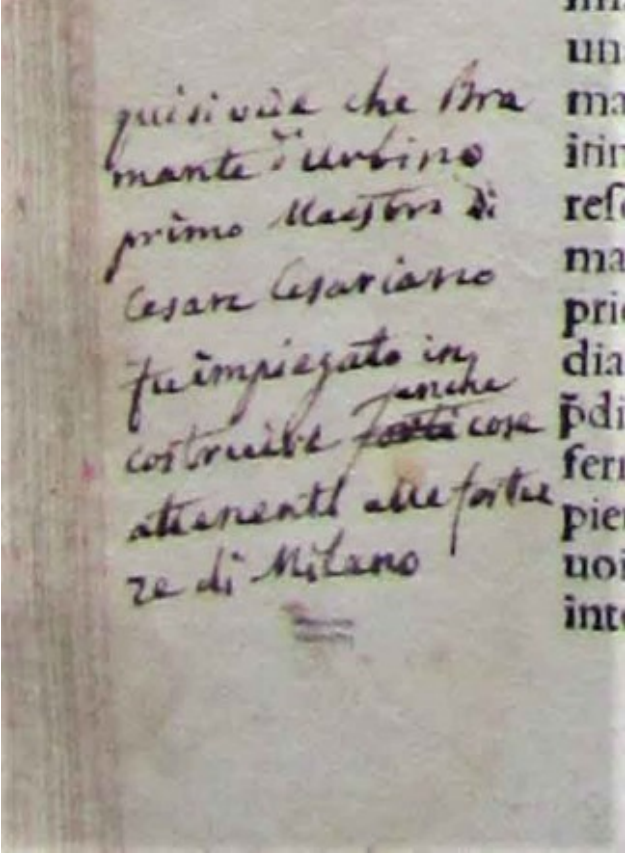 qui si vede che Bra
mante d'Urbino
primo Maestro di
Cesare Cesariano
fu impiegato in
costruire anche cose
attenenti alle fortez
ze di Milano
una
ma
itin
ma
p̄di
uoi